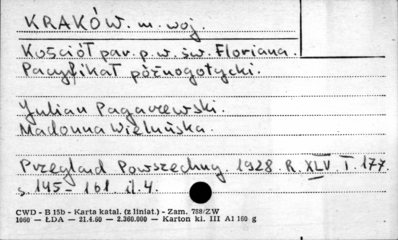 KRAKÓW. m. woj.
Kościół par. p.w. św. Floriana.
Pacyfikał późnogotycki.
Julian Pagaczewski.
Madonna Wieluńska.
Przegląd Powszechny. 1928. R. XLV. T. 177.
s. 145 - 161. il. 4.
CWD - B 15b - Karta katal. (z liniat.) - Zam. 788/ZW
1060 — ŁDA — 21.4.60 — 2.360.000 — Karton kl. III A1 160 g